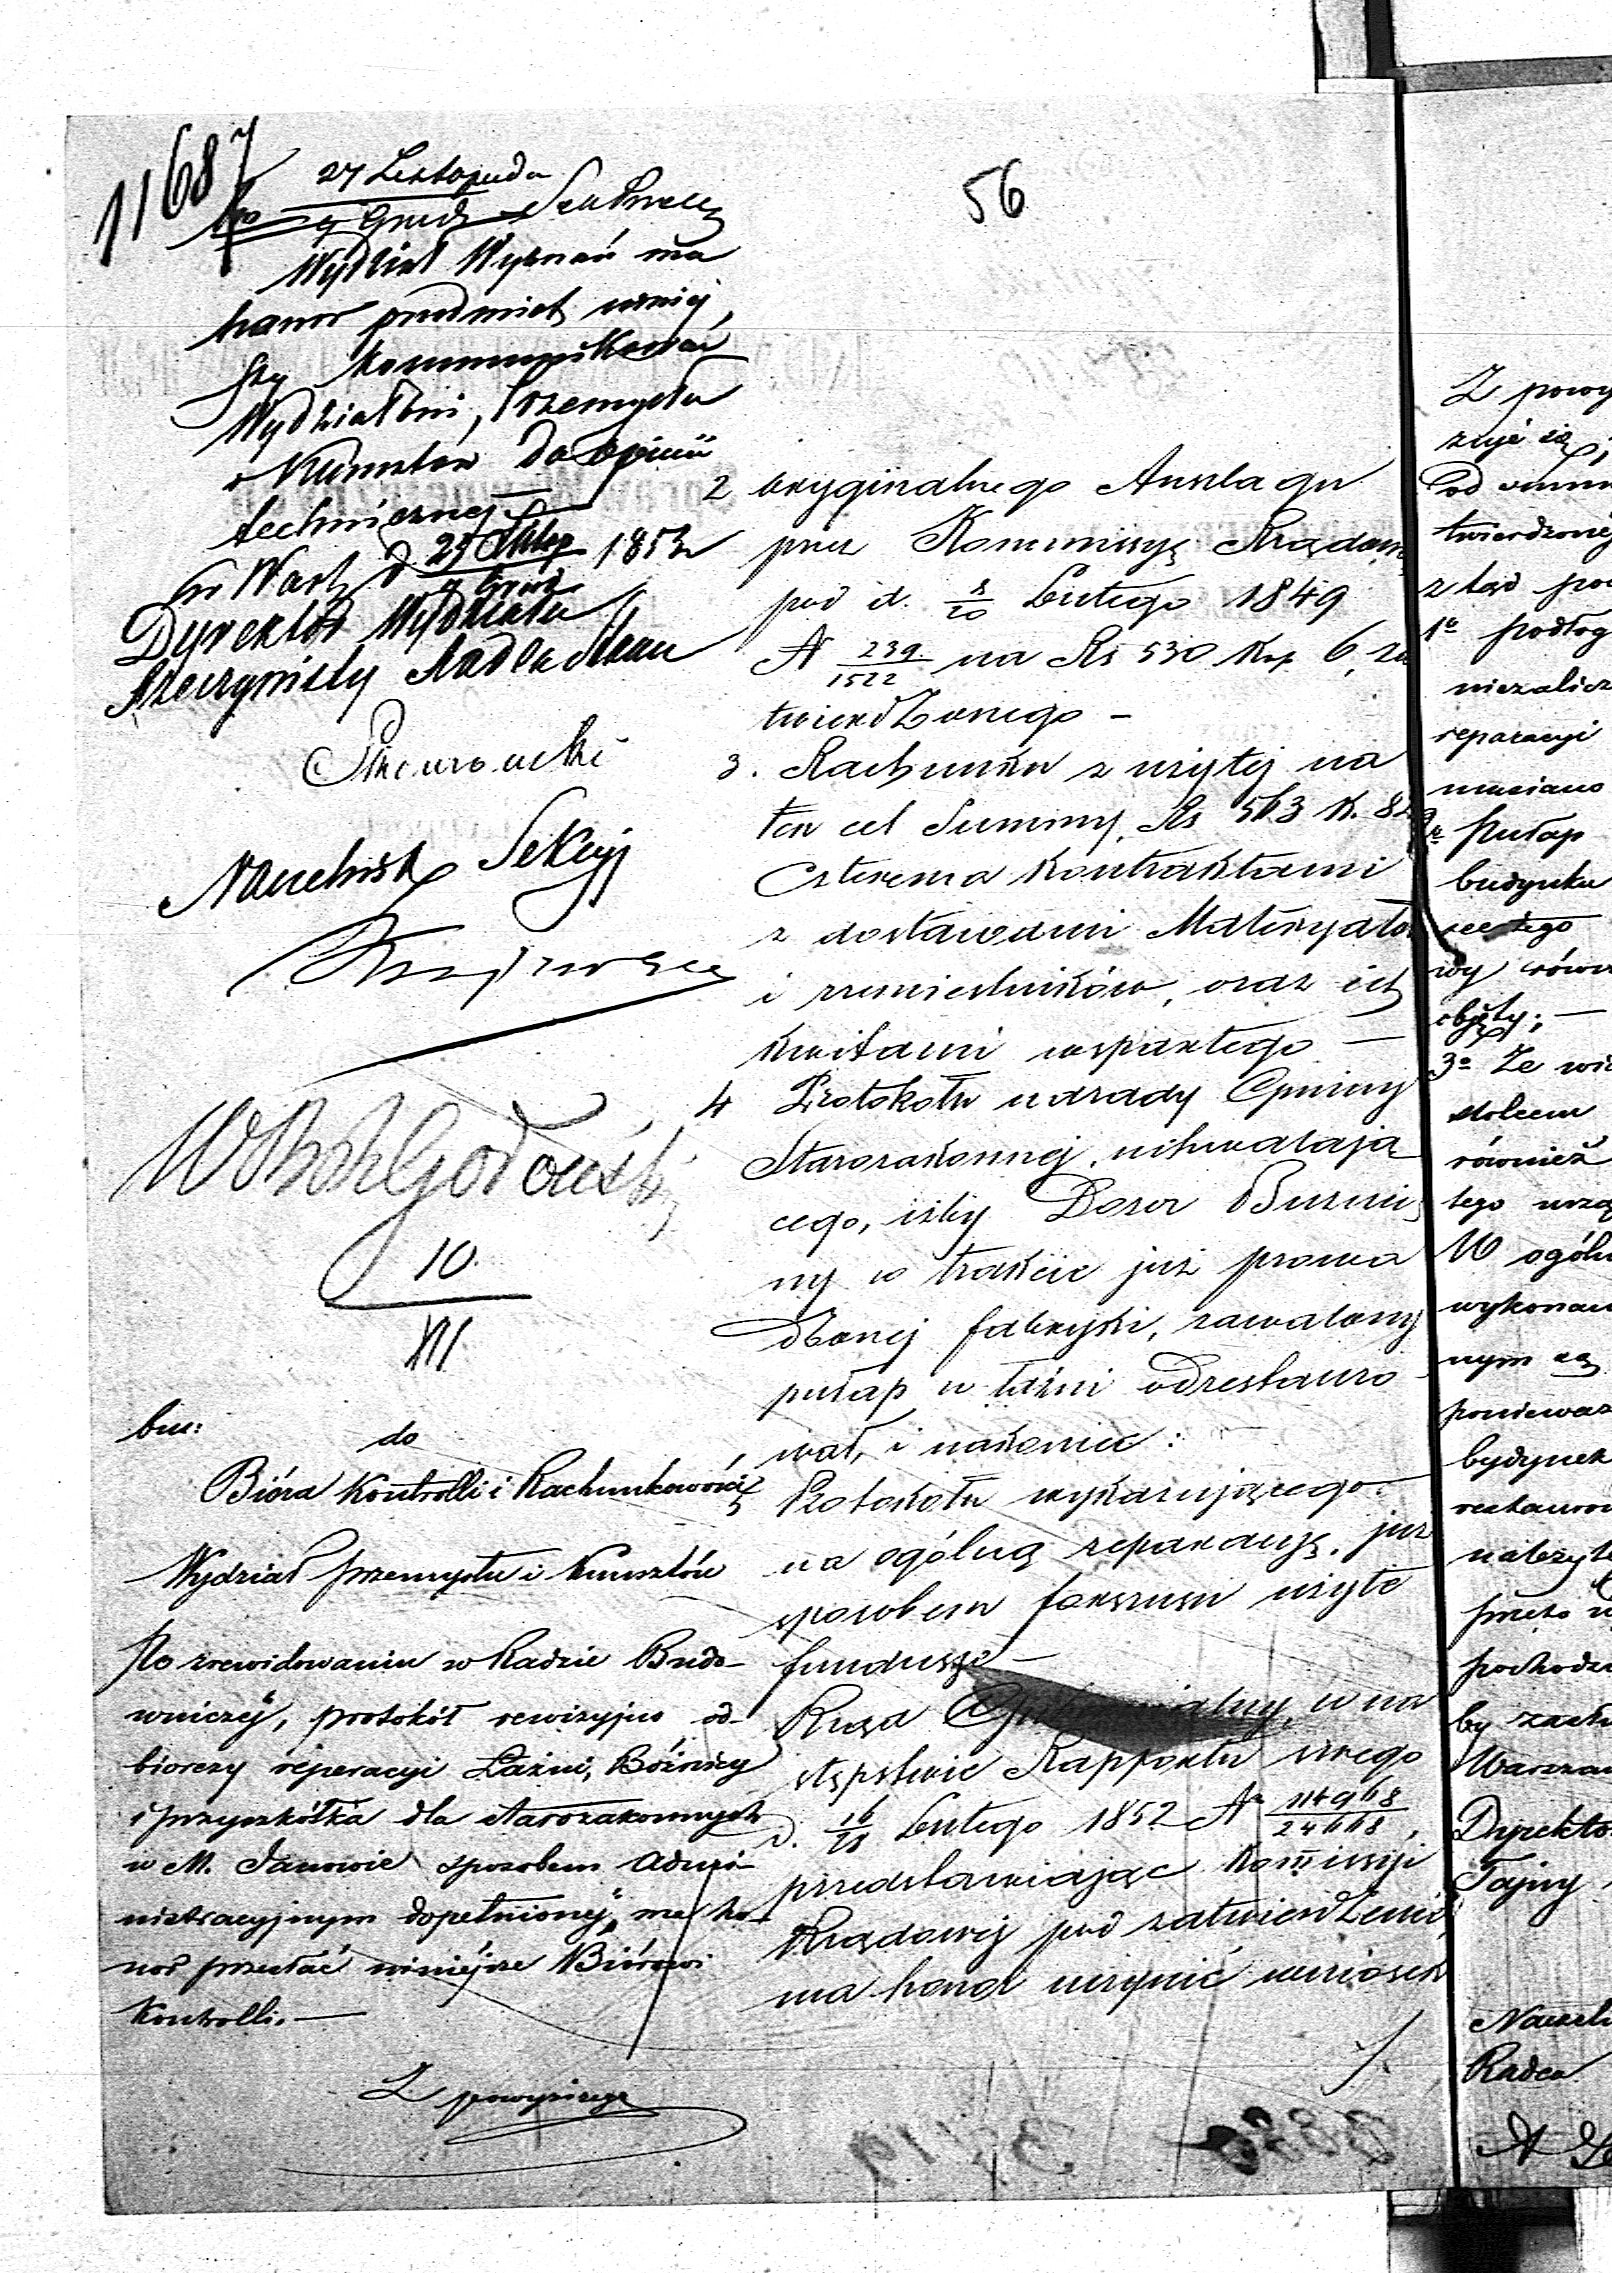 11687
27 Listopada
9 Grud
56
Wydział Wyznań ma
honor przedmiot niniej
szy kommunikować
Wydziałowi, Przemysłu
i Kunsztów do opinii
technicznej —
w Warsz d 1852
Dyrektor Wydziału
Rzeczywisty Radca Stanu
Naczelnik Sekcyj
10.
XII
do
Bióra Kontrolli i Rachunkowości
Wydział Przemysłu i Kunsztów
Po zrewidowaniu w Radzie Budo-
wniczéj, protokół rewizyjno od-
biorczy reperacyi Łaźni, Bóżnicy
i przyszkółka dla starozakonnych
w M. Janowie sposobem admi-
nistracyjnym dopełnionéj, ma ho-
nor przesłać niniéjsze Biórowi
Kontrolli. —
2 oryginalnego Anszlagu
przez Kommissyę Rządową
pod d. 8/20 Lutego 1849
N 239/1522 na Rs 530 kop 6, za
twierdzonego —
3. Rachunku z użytej na
ten cel Summy, Rs 563 k. 82
czterema kontraktami
z dostawami Materyałów
i rzemieślników, oraz ich
kwitami wspartego —
4 Protokołu narady Gminy
Starozakonnej, uchwalają
cego, iżby Dozor Bużni
ny w trakcie już prowa
dzonej fabryki, zawalony
pułap w łaźni odrestauro
wał, i nakoniec:
Protokołu wykazującego
na ogólną reparacyę, już
sposobem forszusu użyte
fundusze —
Rząd Gubernialny, w na
stępstwie Rapportu swego
d. 16/28 Lutego 1852 Nr 114968/24668,
przedstawiając Kommissyi
Rządowej pod zatwierdzenie,
ma honor uczynić wniosek
./.
Z powy
zuje się,
Pod
twierdzonej
z tąd po
1o podłog
niezalicz
reparacyi
musiano
2o Pułap
budynku
wy równ
objęty; —
3o Że wi
stolcem
również
tego urzą
W ogóln
wykonan
nym są
ponieważ
budynek
restauro
należyt
przeto
pochodz
by zach
Warszaw
Dyrekto
Tajny
Naczeln
Radca